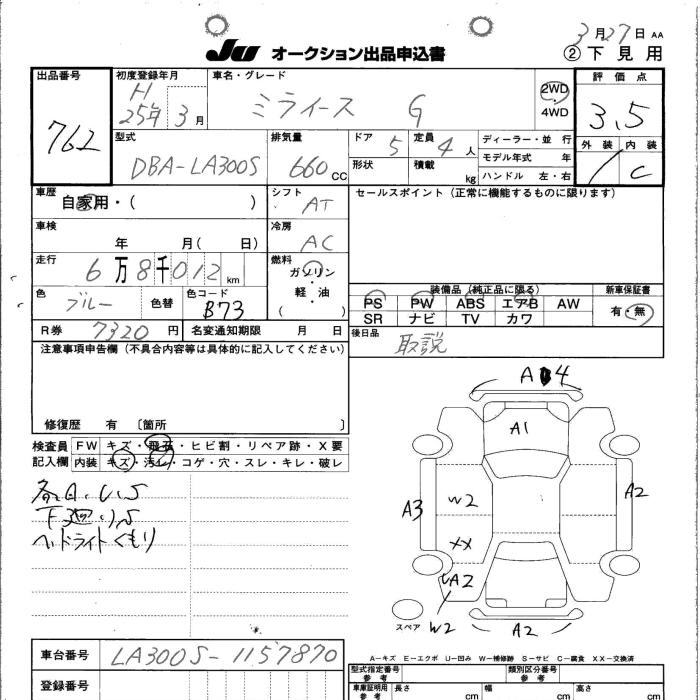 3月27日 AA
JU オークション出品申込書 ② 下見用
出品番号 初度登録年月 車名・グレード 評価点
762 H25年3月 ミライース G 2WD 4WD 3.5
型式 排気量 ドア 5 定員 4人 ディーラー・並行 外装 内装
DBA-LA300S 660cc 形状 積載 kg モデル年式 年 C
ハンドル 左・右
車歴 自家用・( ) シフト AT セールスポイント (正常に機能するものに限ります)
車検 年 月( 日) 冷房 AC
走行 6万8千012km 燃料 ガソリン
軽・油
( )
色 ブルー 色替 色コード B73
装備品 (純正品に限る) 新車保証書
PS PW ABS エアB AW 有・無
SR ナビ TV カワ
R券 7320円 名変通知期限 月 日 後日品 取説
注意事項申告欄 (不具合内容等は具体的に記入してください)
修復歴 有 〔箇所 〕
検査員 FW キズ・飛石・ヒビ割・リペア跡・X要
記入欄 内装 キズ・汚レ・コゲ・穴・スレ・キレ・破レ
ヘッドライトくもり
A 4
A1
A3 W2 A2
XX
UA2
スペア W2 A2
A-キズ E-エクボ U-凹み W-補修跡 S-サビ C-腐食 XX-交換済
車台番号 LA300S-1157870
型式指定番号 参考 類別区分番号 参考
登録番号 車庫証明用 参考 長さ cm 幅 cm 高さ cm